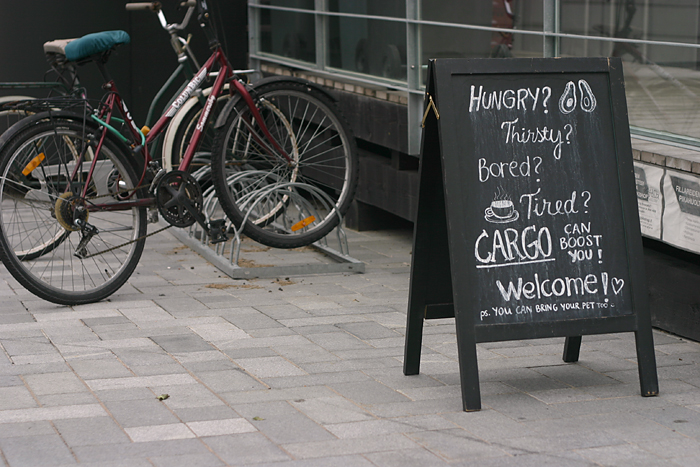 HUNGRY?
Thirsty?
Bored?
Tired?
CARGO CAN BOOST YOU!
Welcome!
ps. YOU CAN BRING YOUR PET TOO